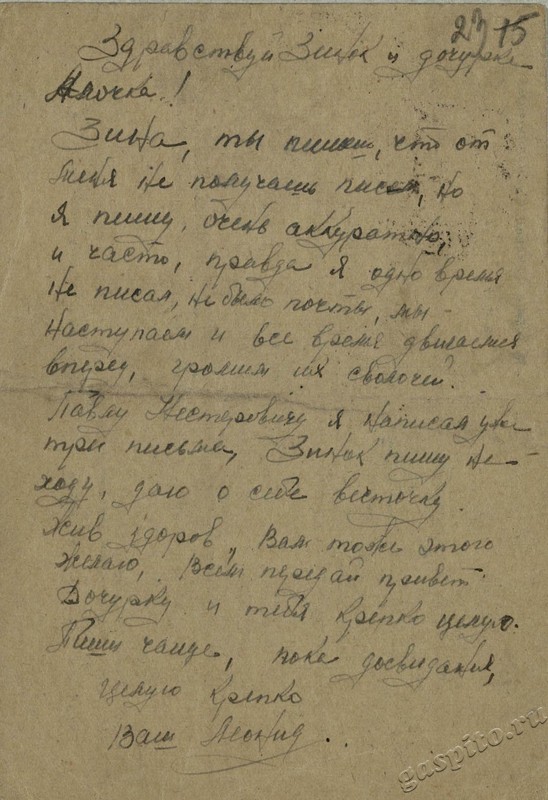 23 15
Здравствуй Зинок и дочурка
Алочка!
Зина, ты пишеш, что от
меня не получаешь писем, но
я пишу очень аккуратно,
и часто, правда я одно время
не писал, не было почты, мы -
наступаем и все время движемся
вперед, громим их сволочей.
Павлу Нестеровичу я написал уже
три письма, Зинок пишу на-
ходу, даю о себе весточку.
Жив здоров, Вам тоже этого
желаю, Всем передай привет.
Дочурку и тебя крепко целую.
Пиши чаще, пока досвидания,
целую крепко
Ваш Леонид.
gaspito.ru